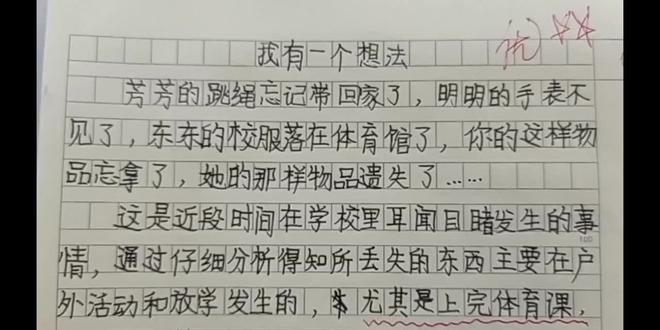 我有一个想法
优
芳芳的跳绳忘记带回家了，明明的手表不
见了，东东的校服落在体育馆了，你的这样物
品忘拿了，她的那样物品遗失了……
这是近段时间在学校里耳闻目睹发生的事
100
情，通过仔细分析得知所丢失的东西主要在户
外活动和放学发生的，尤其是上完体育课，